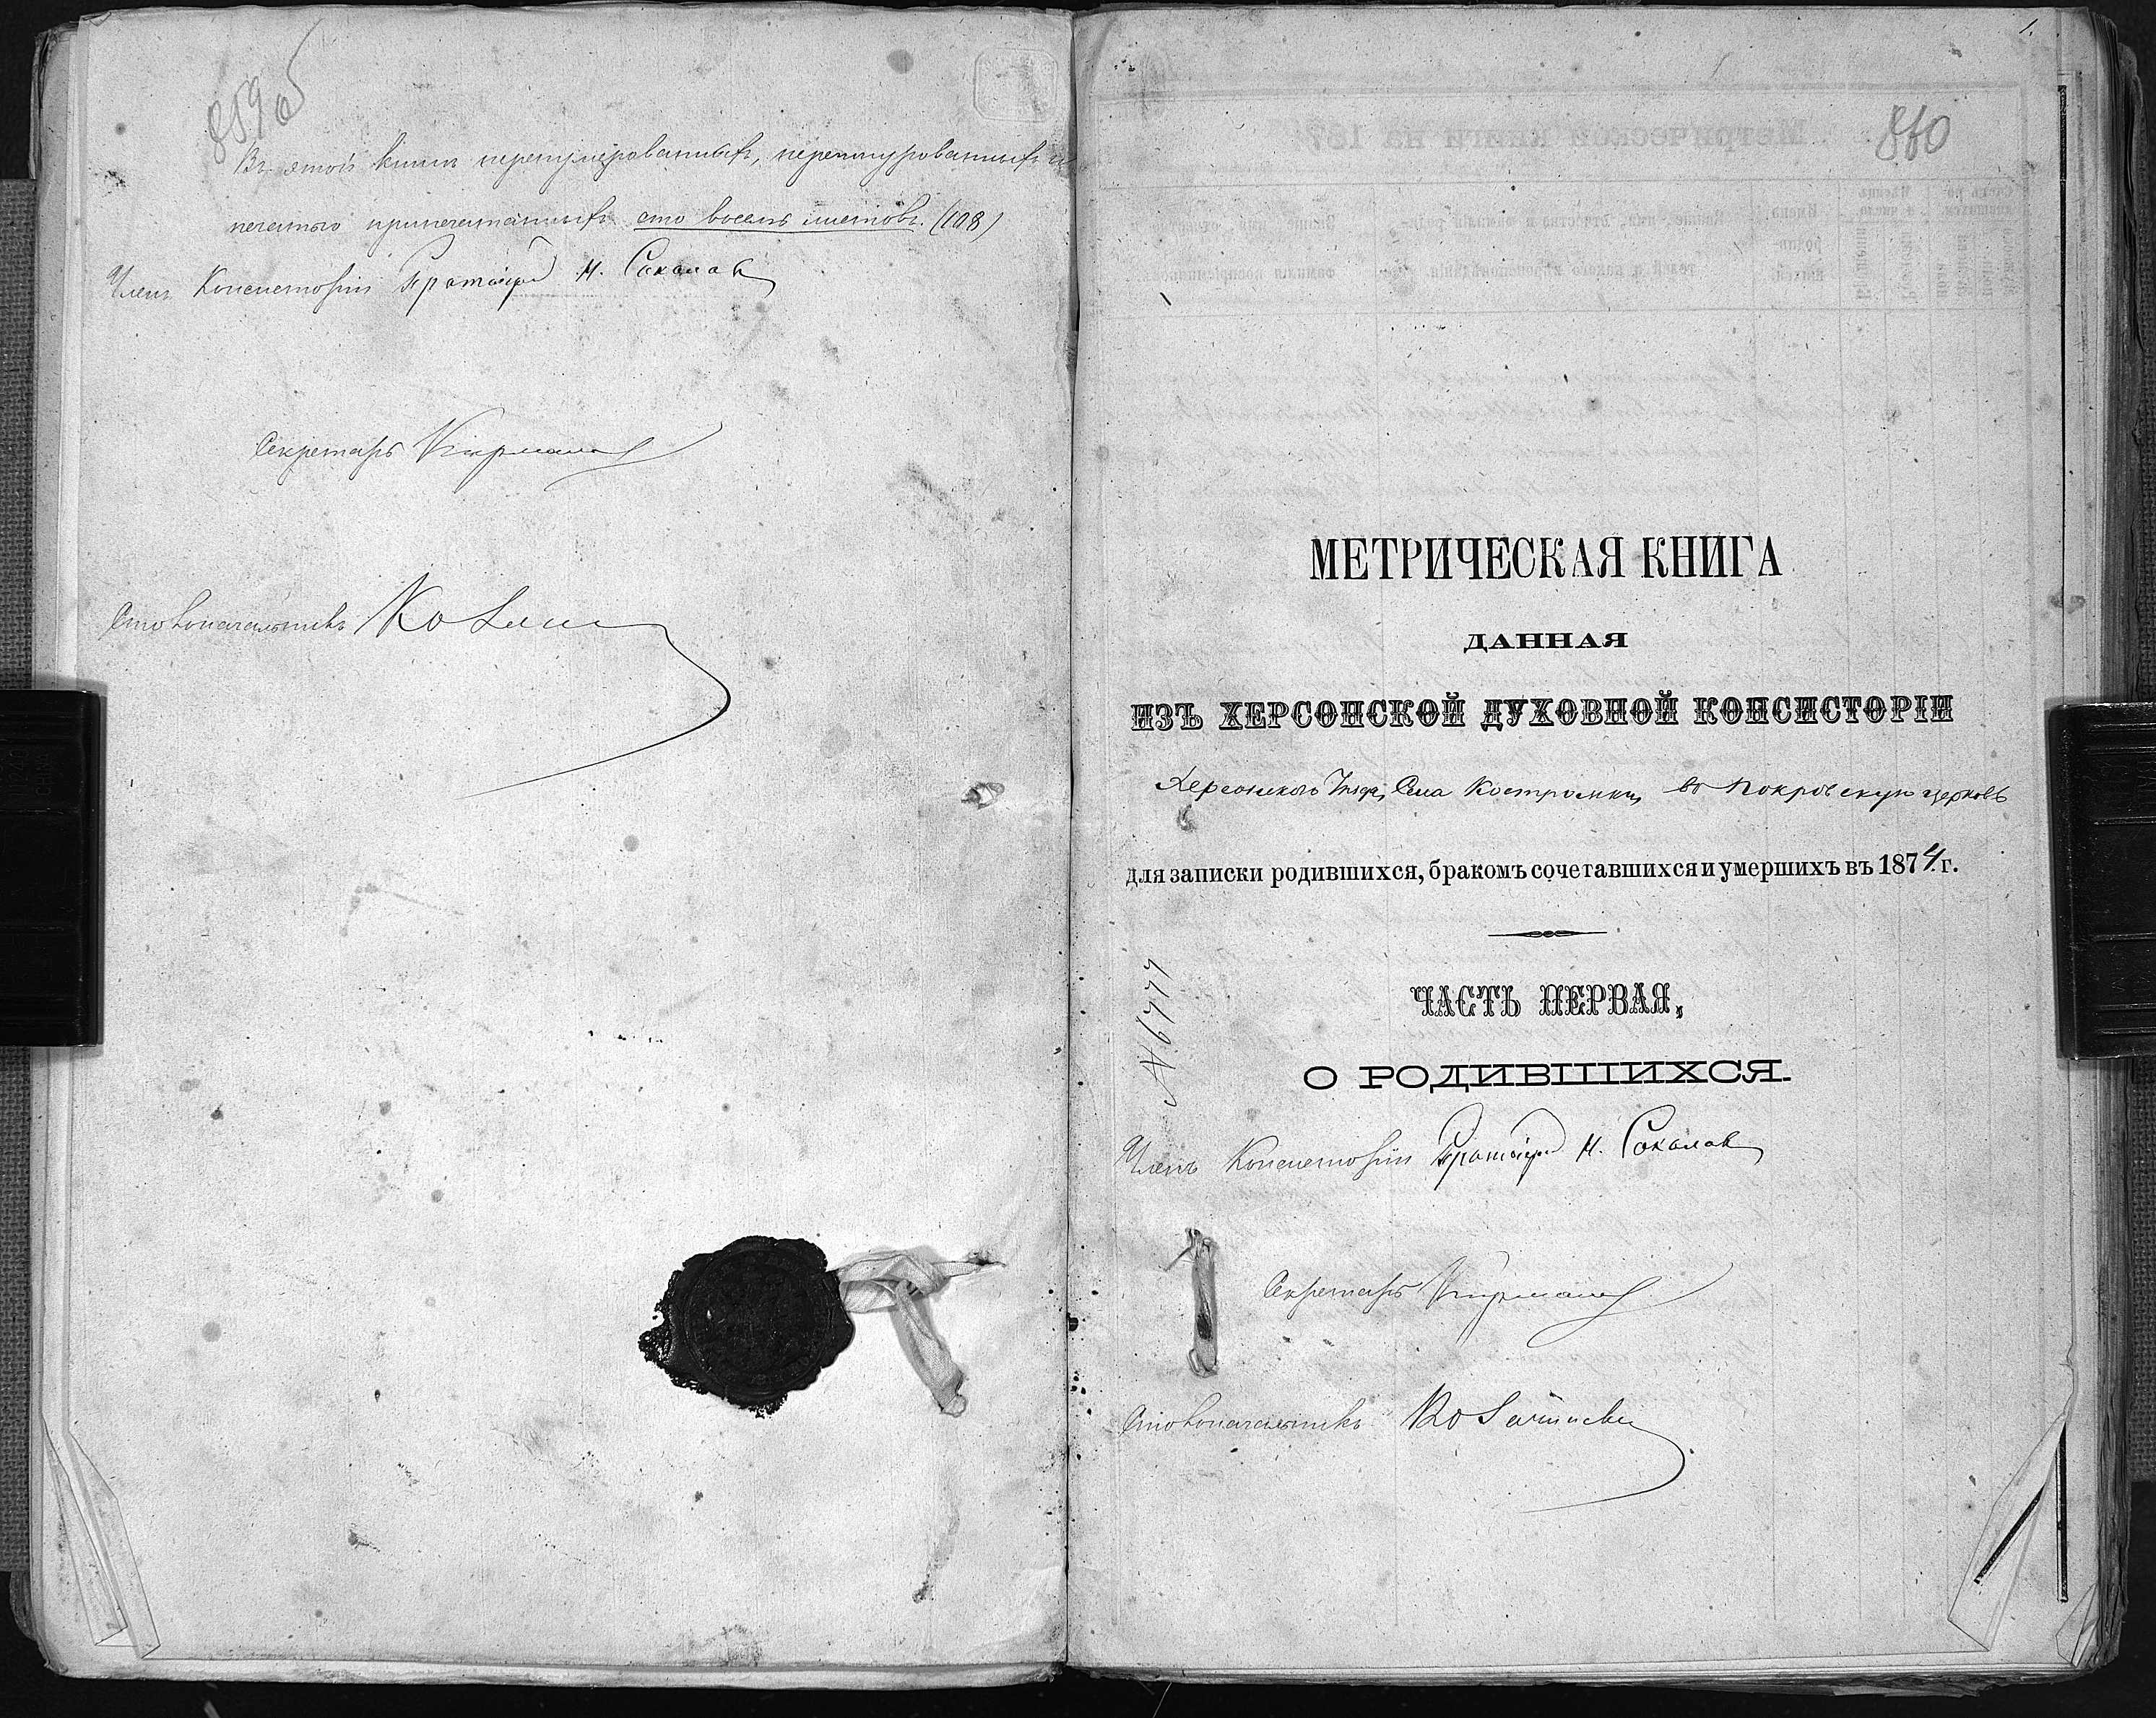 859 об
Въ этой книгѣ перенумерованныхъ, перешнурованныхъ и
печатью припечатанныхъ сто восемь листовъ. (108)
Членъ Консисторіи Протоіерей М. Соколовъ
Секретарь
Столоначальникъ
1.
860
МЕТРИЧЕСКАЯ КНИГА
ДАННАЯ
ИЗЪ ХЕРСОНСКОЙ ДУХОВНОЙ КОНСИСТОРІИ
Херсонскаго Уѣзда, Села Костромки, въ Покровскую церковь
для записки родившихся, бракомъ сочетавшихся и умершихъ въ 1874 г.
ЧАСТЬ ПЕРВАЯ,
О РОДИВШИХСЯ.
№ 6777
Членъ Консисторіи Протоіерей М. Соколовъ
Секретарь
Столоначальникъ